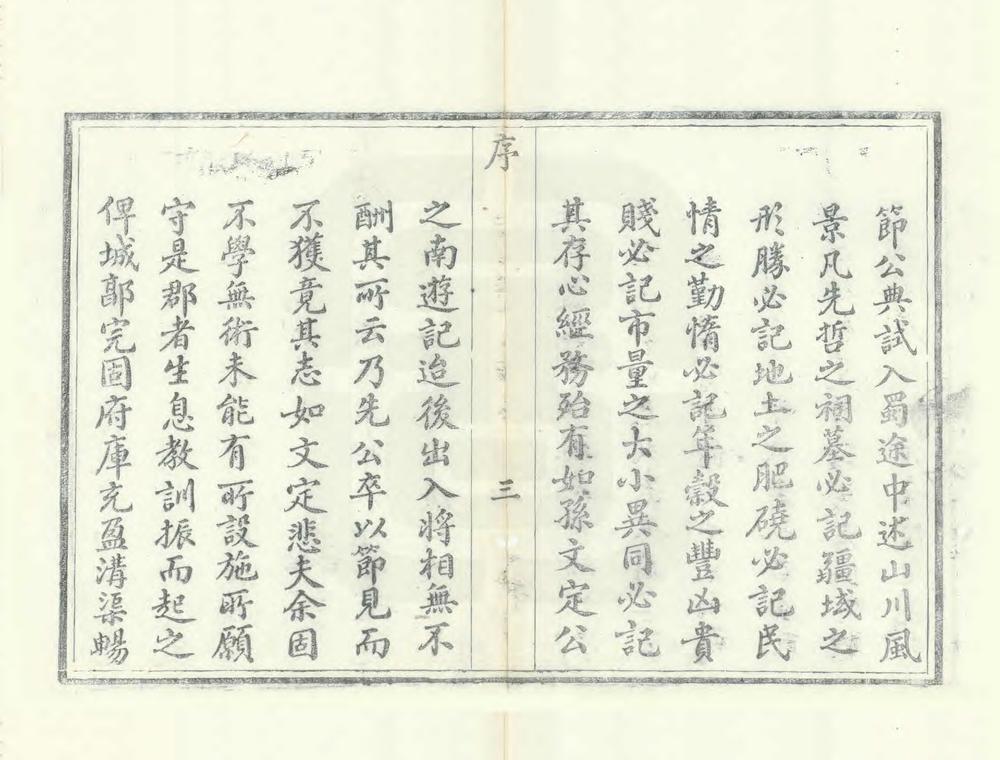 節公典試入蜀途中述山川風
景凡先哲之祠墓必記疆域之
形勝必記地土之肥磽必記民
情之勤惰必記年穀之豐凶貴
賤必記市量之大小異同必記
其存心經務殆有如孫文定公
序
三
之南遊記迨後出入將相無不
酬其所云乃先公卒以節見而
不獲竟其志如文定悲夫余固
不學無術未能有所設施所願
守是郡者生息教訓振而起之
俾城郭完固府庫充盈溝渠暢